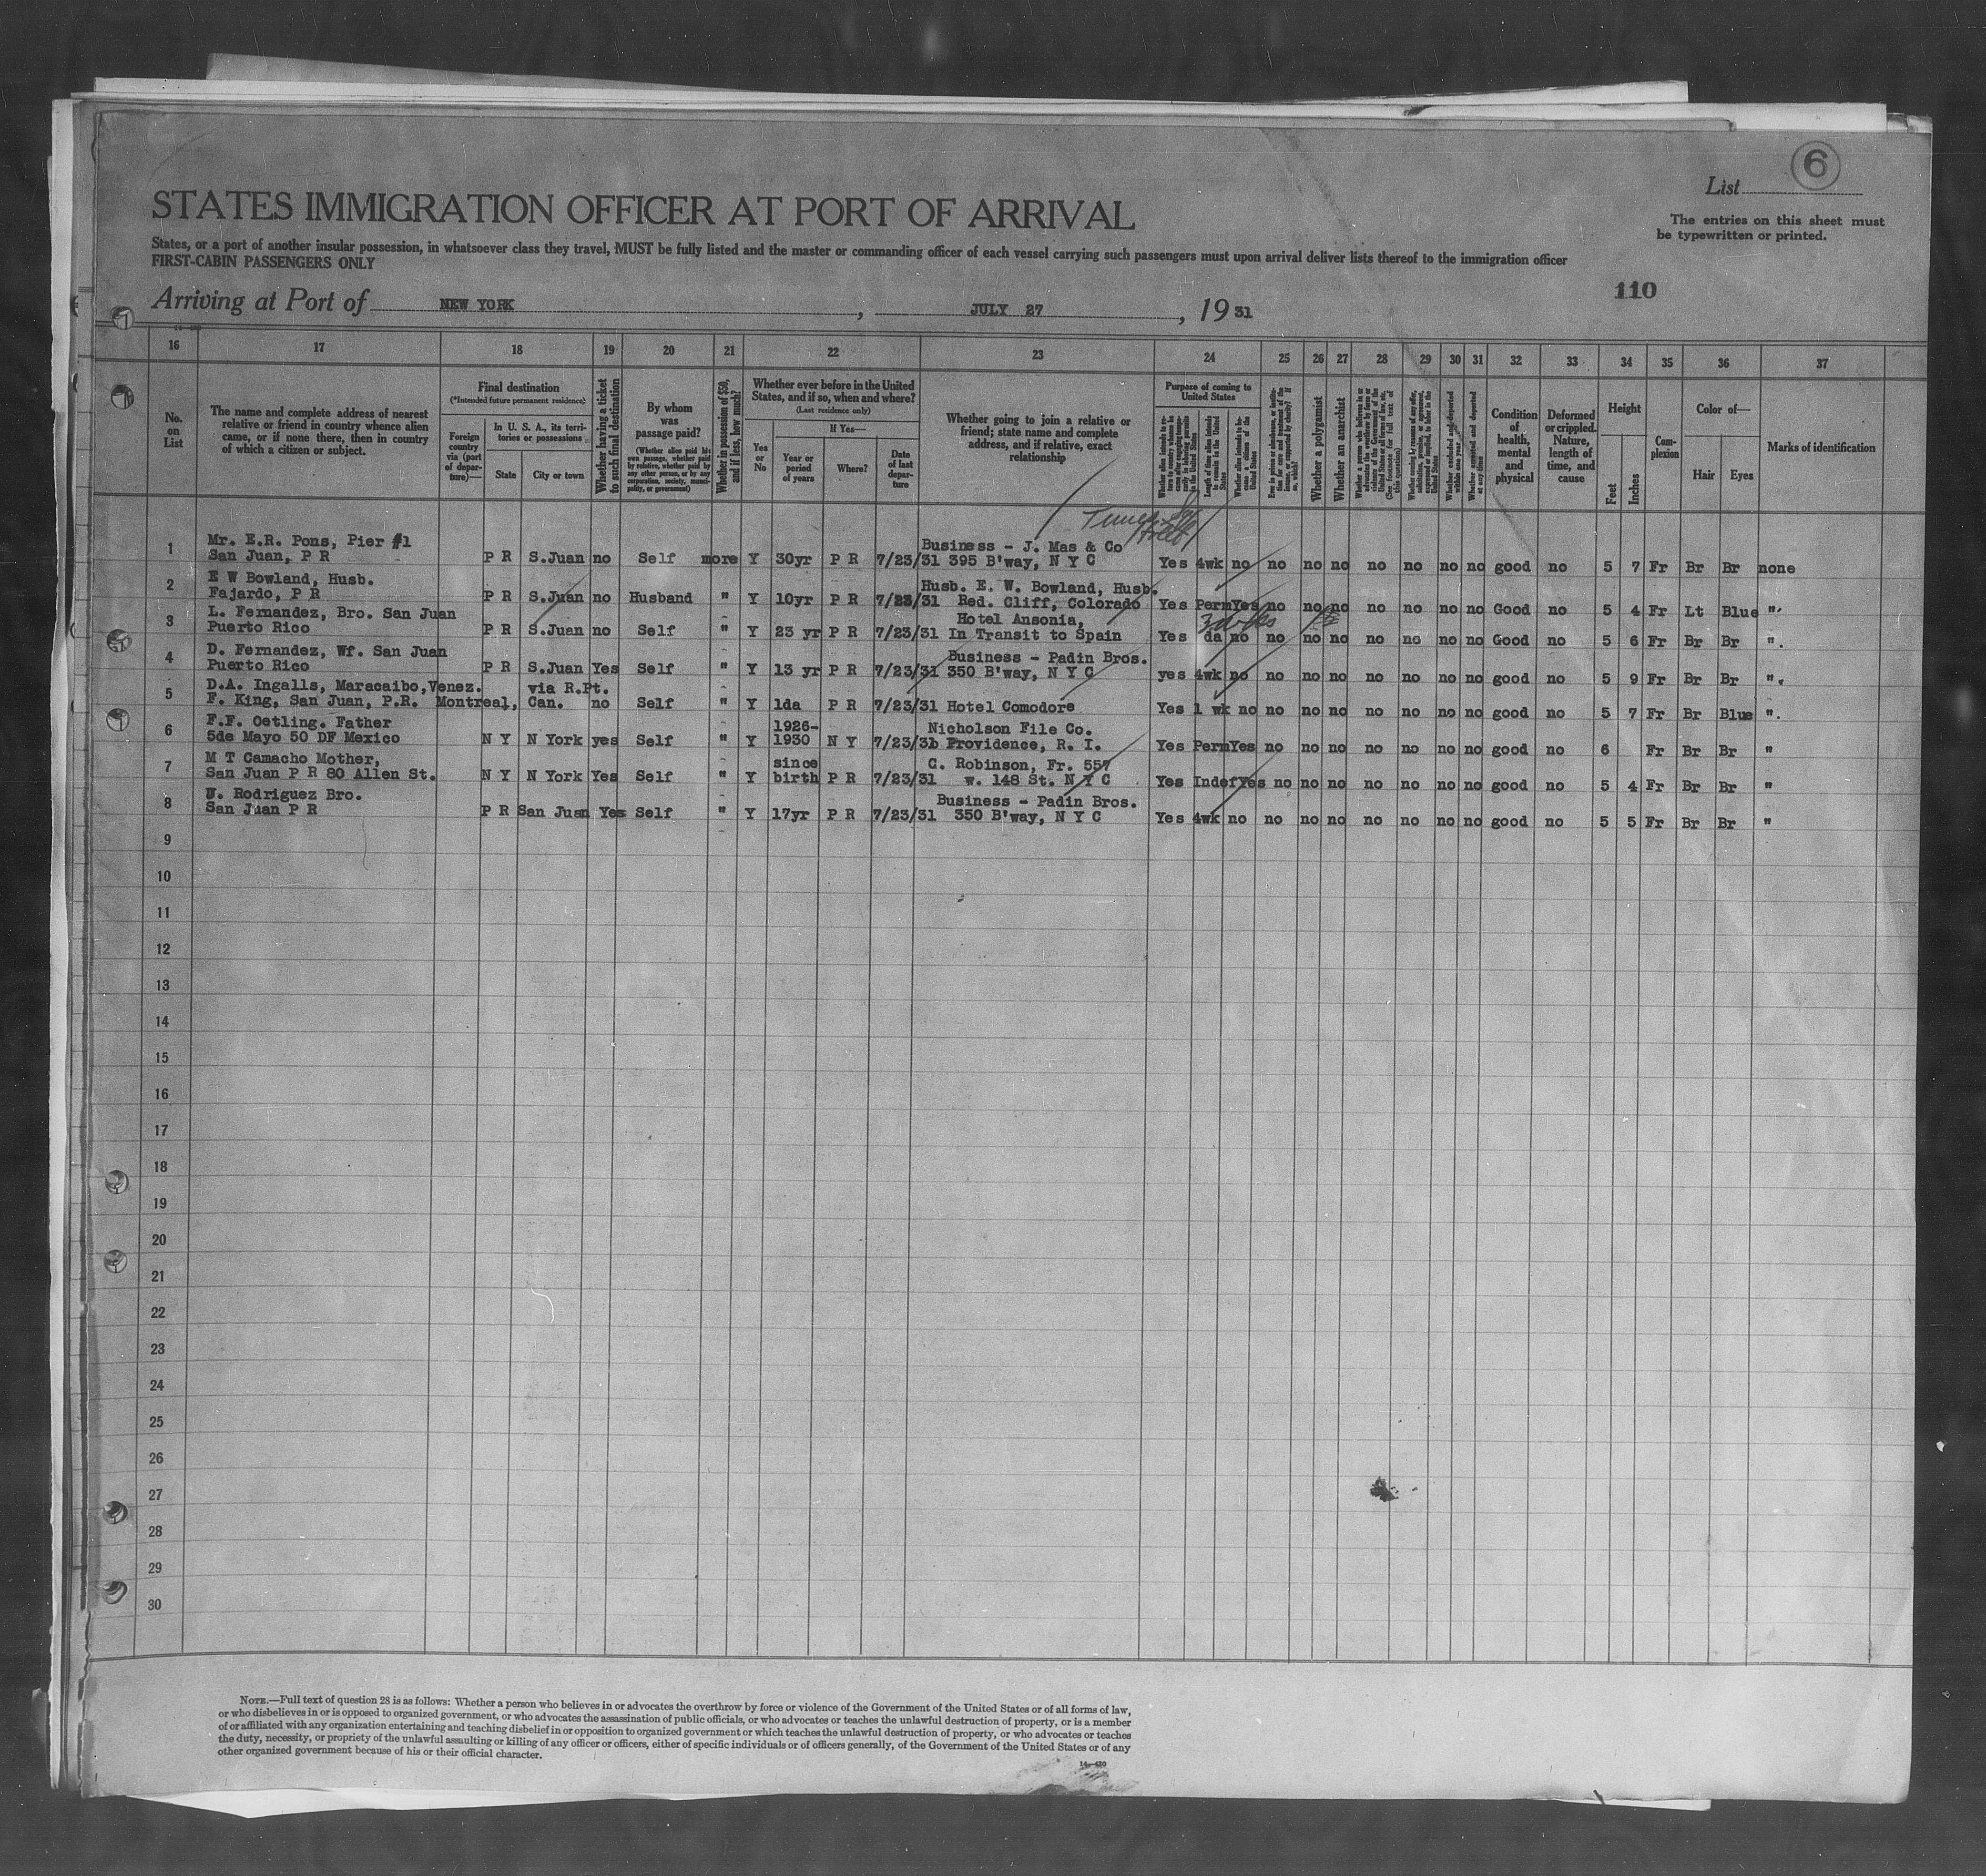 List 6
STATES IMMIGRATION OFFICER AT PORT OF ARRIVAL
The entries on this sheet must
be typewritten or printed.
States, or a port of another insular possession, in whatsoever class they travel, MUST be fully listed and the master or commanding officer of each vessel carrying such passengers must upon arrival deliver lists thereof to the immigration officer
FIRST-CABIN PASSENGERS ONLY
110
Arriving at Port of NEW YORK, JULY 27, 1931
16 17 18 19 20 21 22 23 24 25 26 27 28 29 30 31 32 33 34 35 36 37
No. on List
The name and complete address of nearest
relative or friend in country whence alien
came, or if none there, then in country
of which a citizen or subject.
Final destination
(*Intended future permanent residence)
Foreign country via (port of departure)—
In U. S. A., its territories or possessions
State
City or town
Whether having a ticket to such final destination
By whom was passage paid?
(Whether alien paid his own passage, whether paid by relative, whether paid by any other person, or by any corporation, society, municipality, or government)
Whether in possession of $50, and if less, how much?
Whether ever before in the United
States, and if so, when and where?
(Last residence only)
Yes or No
If Yes—
Year or period of years
Where?
Date of last departure
Whether going to join a relative or
friend; state name and complete
address, and if relative, exact
relationship
Purpose of coming to United States
Length of time alien intends to remain in the United States
Whether alien intends to become a citizen of the United States
Whether a polygamist
Whether an anarchist
Condition of health, mental and physical
Deformed or crippled. Nature, length of time, and cause
Height
Feet
Inches
Complexion
Color of—
Hair
Eyes
Marks of identification
1 Mr. E.R. Pons, Pier #1 Business - J. Mas & Co
San Juan, P R P R S.Juan no Self more Y 30yr P R 7/23/31 395 B'way, N Y C Yes 4wk no no no no no no no no good no 5 7 Fr Br Br none
2 E W Bowland, Husb. Husb. E. W. Bowland, Husb.
Fajardo, P R P R S.Juan no Husband " Y 10yr P R 7/23/31 Red. Cliff, Colorado Yes Perm Yes no no no no no no no Good no 5 4 Fr Lt Blue "
3 L. Fernandez, Bro. San Juan Hotel Ansonia,
Puerto Rico P R S.Juan no Self " Y 23 yr P R 7/23/31 In Transit to Spain Yes da no no no no no no no no Good no 5 6 Fr Br Br "
4 D. Fernandez, Wf. San Juan Business - Padin Bros.
Puerto Rico P R S.Juan Yes Self " Y 13 yr P R 7/23/31 350 B'way, N Y C yes 4wk no no no no no no no no good no 5 9 Fr Br Br "
5 D.A. Ingalls, Maracaibo,Venez. via R.Pt.
F. King, San Juan, P.R. Montreal, Can. no Self " Y 1da P R 7/23/31 Hotel Comodore Yes 1 wk no no no no no no no no good no 5 7 Fr Br Blue "
6 F.F. Oetling. Father 1926- Nicholson File Co.
5de Mayo 50 DF Mexico N Y N York yes Self " Y 1930 N Y 7/23/31 Providence, R. I. Yes Perm Yes no no no no no no no good no 6 Fr Br Br "
7 M T Camacho Mother, since C. Robinson, Fr. 557
San Juan P R 80 Allen St. N Y N York Yes Self " Y birth P R 7/23/31 w. 148 St. N Y C Yes Indef Yes no no no no no no no good no 5 4 Fr Br Br "
8 U. Rodriguez Bro. Business - Padin Bros.
San Juan P R P R San Juan Yes Self " Y 17yr P R 7/23/31 350 B'way, N Y C Yes 4wk no no no no no no no no good no 5 5 Fr Br Br "
9
10
11
12
13
14
15
16
17
18
19
20
21
22
23
24
25
26
27
28
29
30
NOTE.—Full text of question 28 is as follows: Whether a person who believes in or advocates the overthrow by force or violence of the Government of the United States or of all forms of law,
or who disbelieves in or is opposed to organized government, or who advocates the assassination of public officials, or who advocates or teaches the unlawful destruction of property, or is a member
of or affiliated with any organization entertaining and teaching disbelief in or opposition to organized government or which teaches the unlawful destruction of property, or who advocates or teaches
the duty, necessity, or propriety of the unlawful assaulting or killing of any officer or officers, either of specific individuals or of officers generally, of the Government of the United States or of any
other organized government because of his or their official character.
14—430